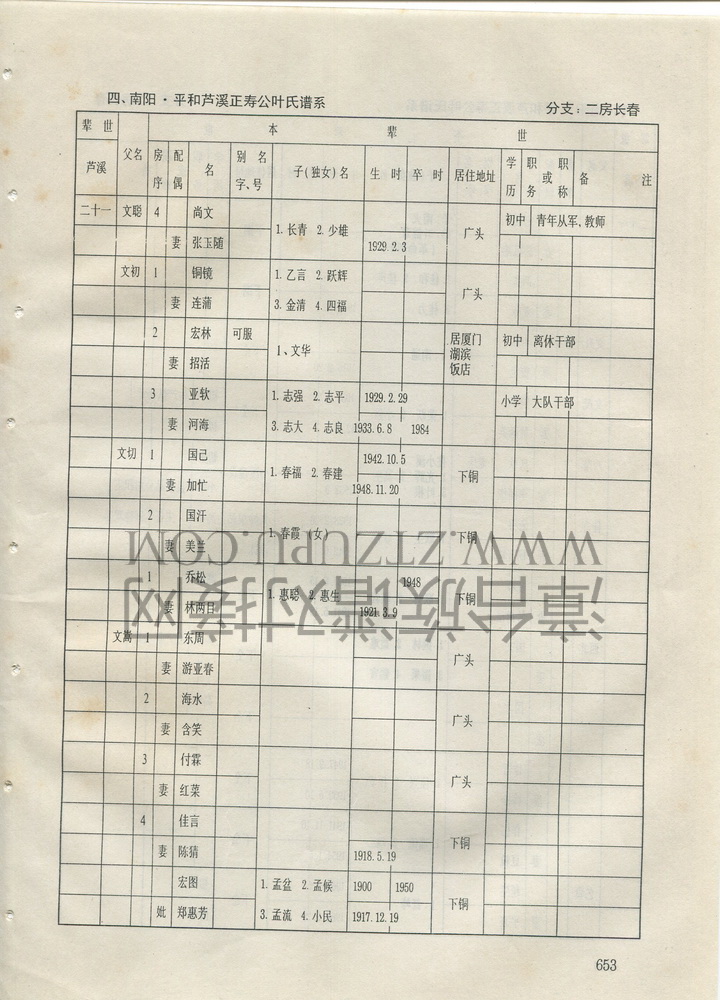 四、南阳·平和芦溪正寿公叶氏谱系 分支：二房长春
辈 世 本 辈 世
芦溪 父名 房序 配偶 名 别名字、号 子(独女)名 生 时 卒 时 居住地址 学历 职或职务称 备 注
二十一 文聪 4 尚文 1.长青 2.少雄 广头 初中 青年从军,教师
妻 张玉随 1929.2.3
文初 1 铜镜 1.乙言 2.跃辉 广头
妻 连蒲 3.金清 4.四福
2 宏林 可服 1、文华 居厦门湖滨饭店 初中 离休干部
妻 招活
3 亚软 1.志强 2.志平 1929.2.29 小学 大队干部
妻 河海 3.志大 4.志良 1933.6.8 1984
文切 1 国己 1.春福 2.春建 1942.10.5 下铜
妻 加忙 1948.11.20
2 国汗 1.春霞(女) 下铜
妻 美兰
1 乔松 1.惠聪 2.惠生 1948 下铜
妻 林两目 1921.3.9
文嵩 1 东周 广头
妻 游亚春
2 海水 广头
妻 含笑
3 付霖 广头
妻 红菜
4 佳言 下铜
妻 陈猜 1918.5.19
宏图 1.孟盆 2.孟候 1900 1950 下铜
妣 郑惠芳 3.孟流 4.小民 1917.12.19
653
WWW.ZTZUPU.COM
漳台族谱对接网